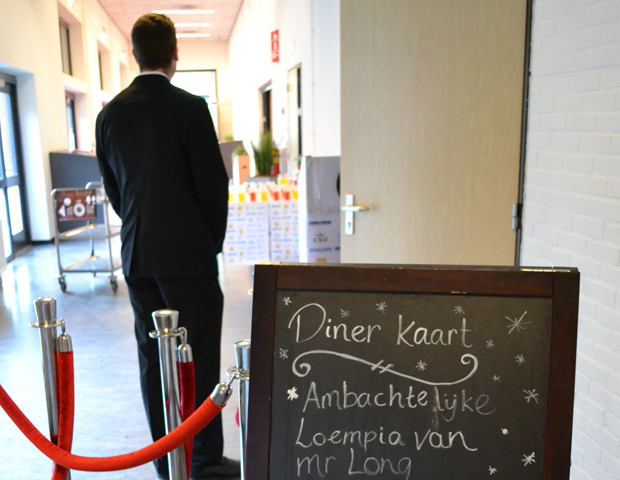 Diner Kaart
Ambachtelijke
Loempia van
mr Long